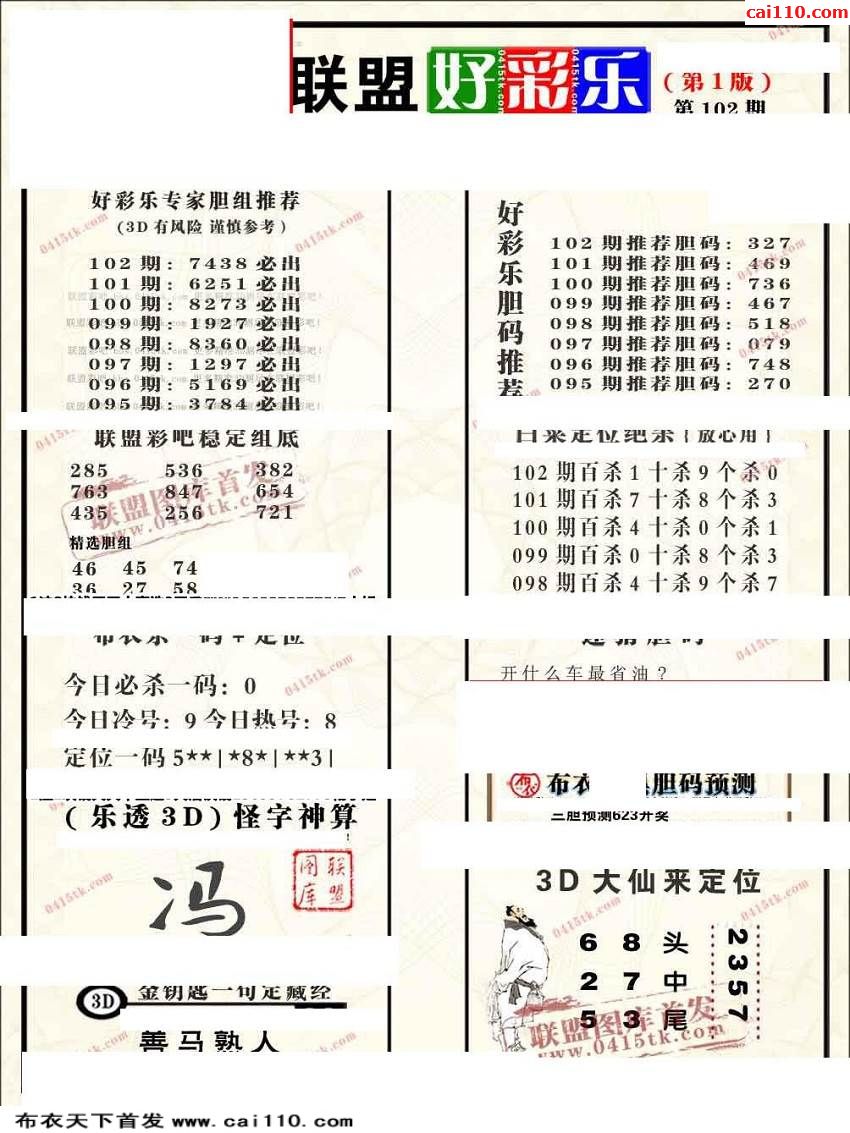 cai110.com
联盟好彩乐
(第1版)
第102期
好彩乐专家胆组推荐
(3D有风险 谨慎参考)
102期: 7438必出
101期: 6251必出
100期: 8273必出
099期: 1927必出
098期: 8360必出
097期: 1297必出
096期: 5169必出
095期: 3784必出
联盟彩吧稳定组底
285 536 382
763 847 654
435 256 721
精选胆组
46 45 74
36 27 58
布衣杀一码+定位
今日必杀一码: 0
今日冷号: 9 今日热号: 8
定位一码5**|*8*|**3|
(乐透3D)怪字神算
冯
联盟图库
3D
金钥匙一句定藏经
善马熟人
好彩乐胆码推荐
102期推荐胆码: 327
101期推荐胆码: 469
100期推荐胆码: 736
099期推荐胆码: 467
098期推荐胆码: 518
097期推荐胆码: 079
096期推荐胆码: 748
095期推荐胆码: 270
102期百杀1十杀9个杀0
101期百杀7十杀8个杀3
100期百杀4十杀0个杀1
099期百杀0十杀8个杀3
098期百杀4十杀9个杀7
开什么车最省油?
布衣 胆码预测
三胆预测623开奖
3D大仙来定位
6 8 头
2 7 中
5 3 尾
2357
联盟图库首发
www.0415tk.com
布衣天下首发 www.cai110.com